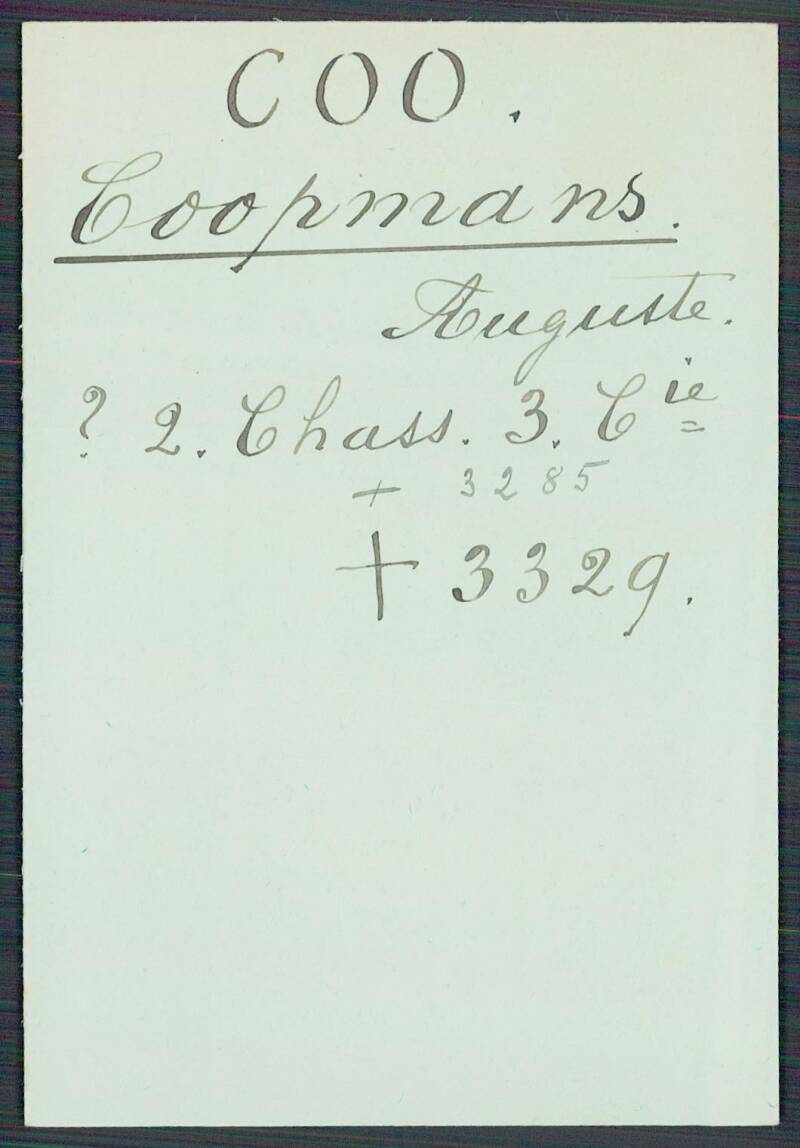 COO.
Coopmans.
Auguste.
? 2. Chass. 3. Cie
+ 3285
+ 3329.